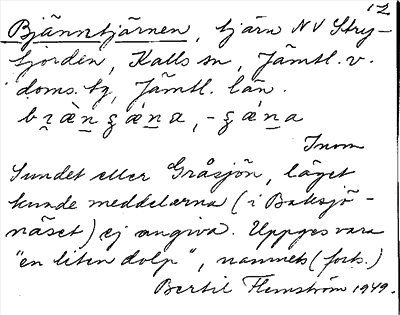 12
Bjänntjärnen, tjärn NV Stry-
fjorden, Kalls sn, Jämtl. v.
doms. hg, Jämtl. län.
Inom
Sundet eller Gråsjön, läget
kunde meddelarna (i Baksjö-
näset) ej angiva. Uppges vara
"en liten dolp", namnets (forts.)
Bertil Flemström 1949.